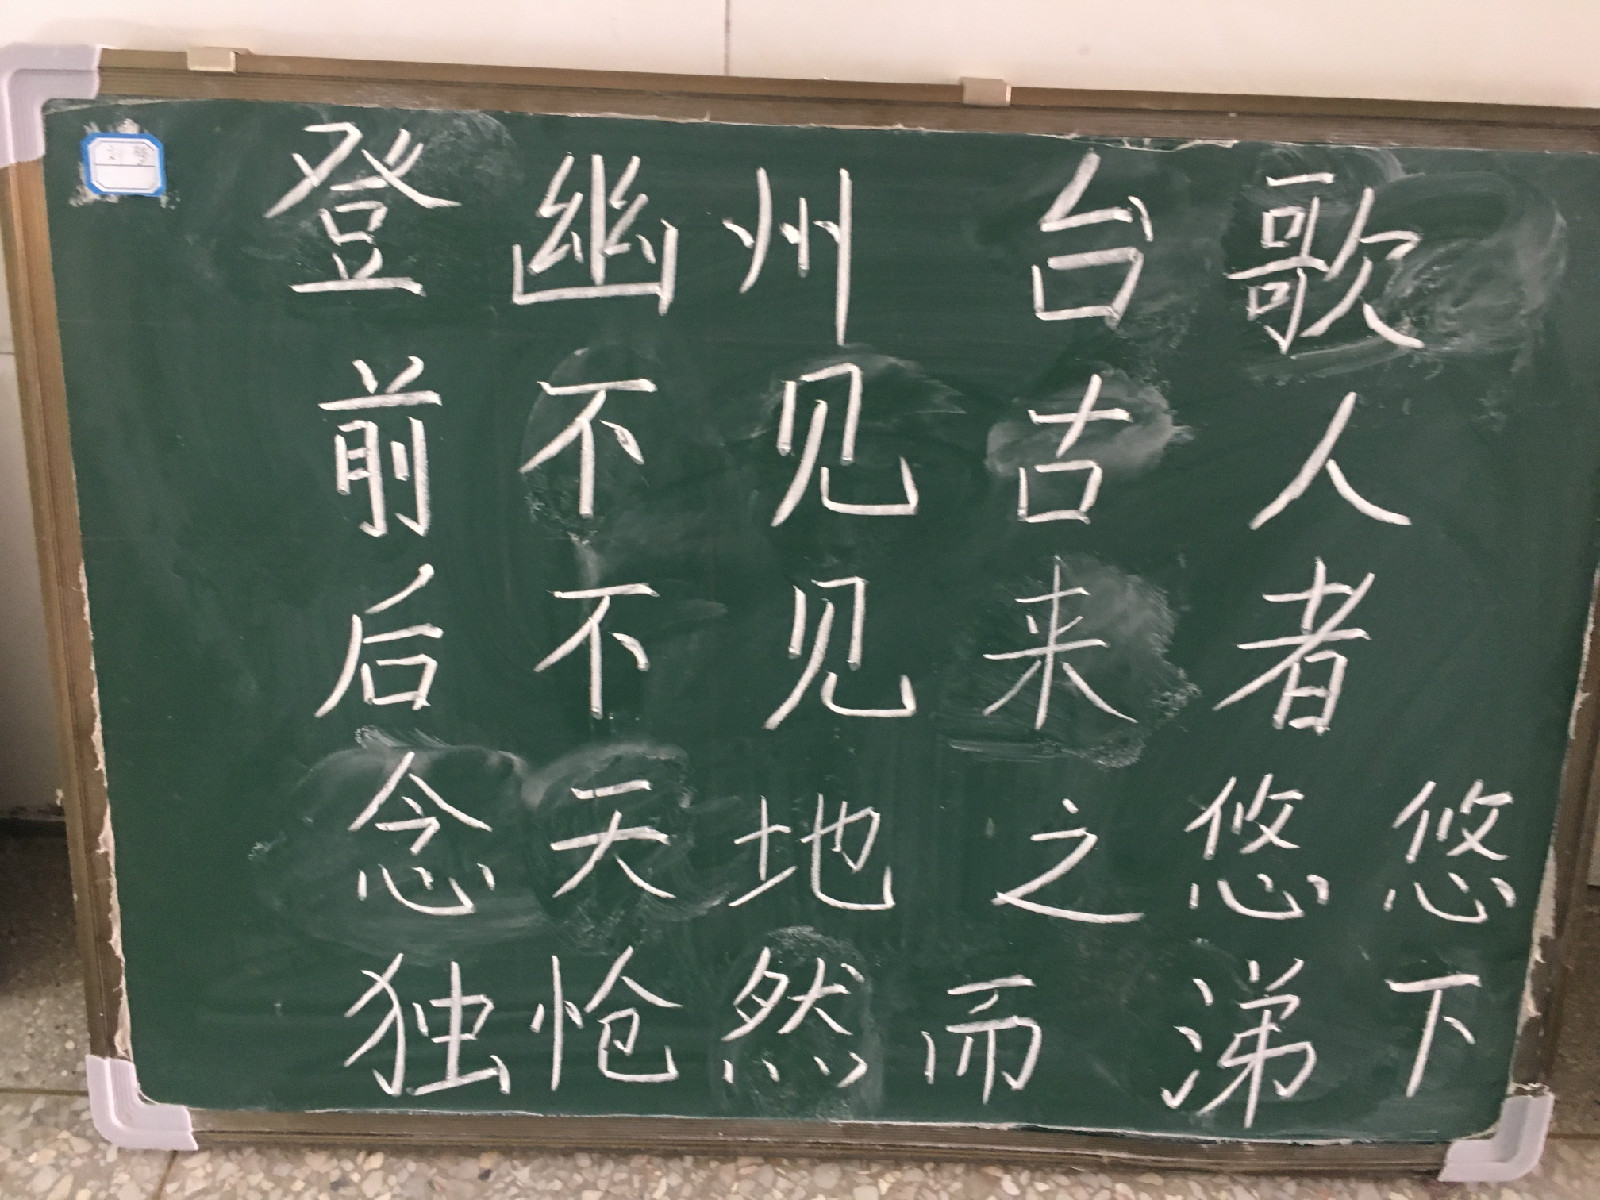 登幽州台歌
前不见古人
后不见来者
念天地之悠悠
独怆然而涕下